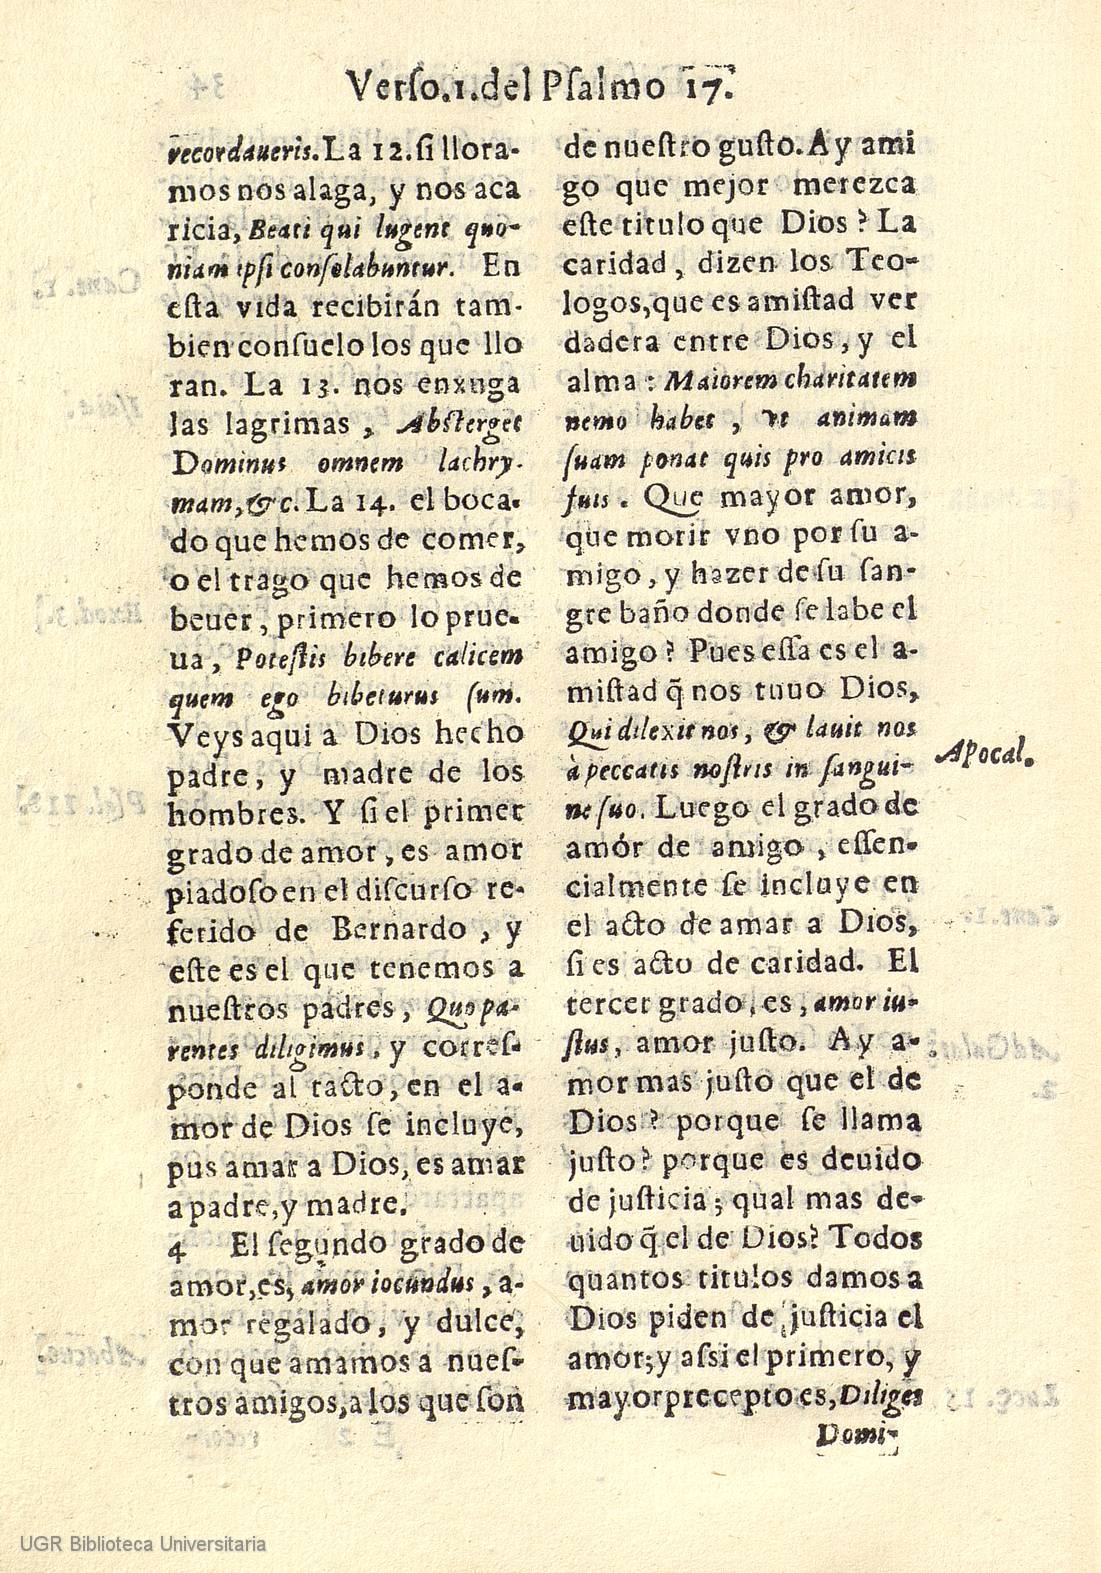 Verſo.1.del Pſalmo 17.
recordaueris. La 12. ſi llora-
mos nos alaga, y nos aca
ricia, Beati qui lugent quo-
niam ipſi conſolabuntur. En
eſta vida recibirán tam-
bien conſuelo los que llo
ran. La 13. nos enxuga
las lagrimas, Abſterget
Dominus omnem lachry-
mam, &c. La 14. el boca-
do que hemos de comer,
o el trago que hemos de
beuer, primero lo prue-
ua, Poteſtis bibere calicem
quem ego bibeturus ſum.
Veys aqui a Dios hecho
padre, y madre de los
hombres. Y ſi el primer
grado de amor, es amor
piadoſo en el diſcurſo re-
ferido de Bernardo, y
eſte es el que tenemos a
nueſtros padres, Quo pa-
rentes diligimus, y correſ-
ponde al tacto, en el a-
mor de Dios ſe incluye,
pus amar a Dios, es amar
a padre, y madre.
4 El ſegundo grado de
amor, es, amor iocundus, a-
mor regalado, y dulce,
con que amamos a nueſ-
tros amigos, a los que ſon
de nueſtro guſto. Ay ami
go que mejor merezca
eſte titulo que Dios? La
caridad, dizen los Teo-
logos, que es amiſtad ver
dadera entre Dios, y el
alma: Maiorem charitatem
nemo habet, vt animam
ſuam ponat quis pro amicis
ſuis. Que mayor amor,
que morir vno por ſu a-
migo, y hazer de ſu ſan-
gre baño donde ſe labe el
amigo? Pues eſſa es el a-
miſtad q̃ nos tuuo Dios,
Qui dilexit nos, & lauit nos
à peccatis noſtris in ſangui-
ne ſuo. Luego el grado de
amór de amigo, eſſen-
cialmente ſe incluye en
el acto de amar a Dios,
ſi es acto de caridad. El
tercer grado, es, amor iu-
ſtus, amor juſto. Ay a-
mor mas juſto que el de
Dios? porque ſe llama
juſto? porque es deuido
de juſticia; qual mas de-
uido q̃ el de Dios? Todos
quantos titulos damos a
Dios piden de juſticia el
amor; y aſsi el primero, y
mayor precepto es, Diliges
Domi-
Apocal.
UGR Biblioteca Universitaria